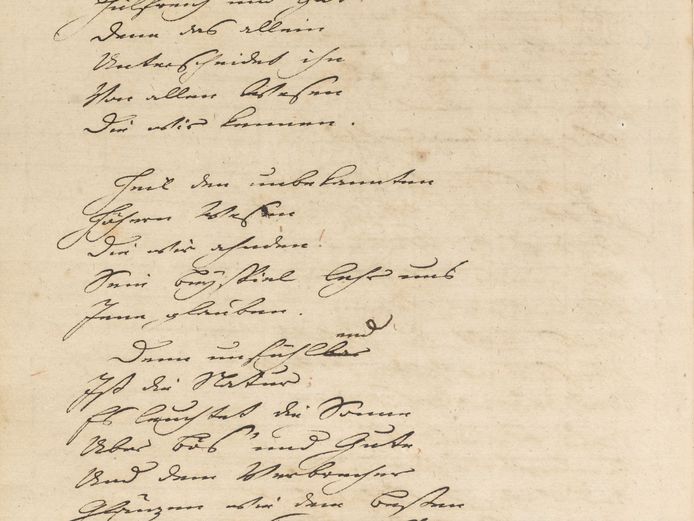 Hülfreich und gut
Denn das allein
Unterscheidet ihn
Von allen Wesen
Die wir kennen.
Heil den unbekannten
Höhern Wesen
Die wir ahnden!
Sein Beyspiel lehr uns
Jene glauben.
end
Denn unfühlbar
Ist die Natur
Es leuchtet die Sonne
Über Bös' und Gute
Und dem Verbrecher
Glänzen wie dem Besten